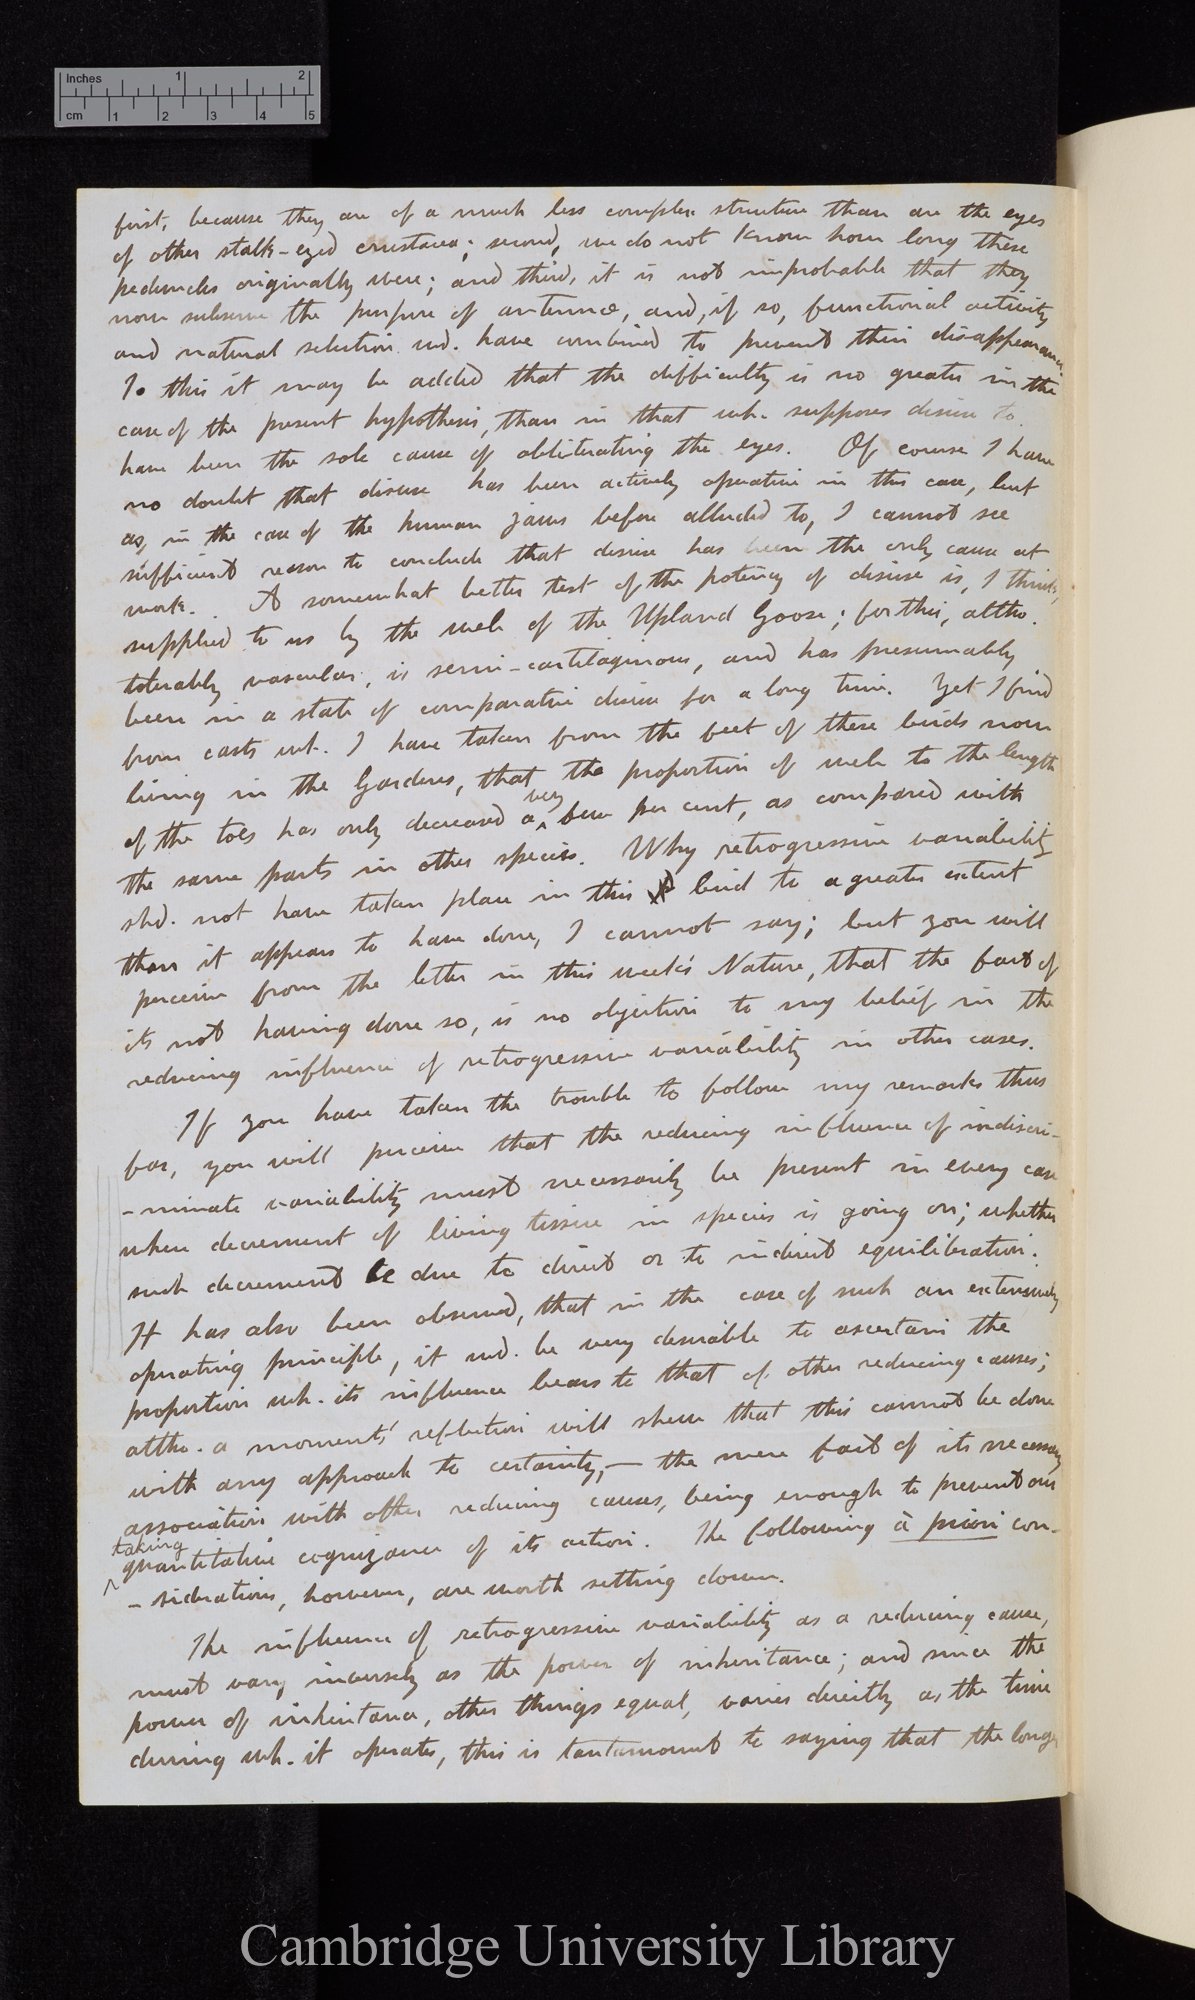 Inches 1 2
cm 1 2 3 4 5
first, because they are of a much less complex structure than are the eyes
of other stalk-eyed crustacea; second, we do not know how long these
peduncles originally were; and third, it is not improbable that they
now subserve the purpose of antennæ, and, if so, functional activity
and natural selection wd. have combined to prevent their disappearance.
To this it may be added that the difficulty is no greater in the
case of the present hypothesis, than in that wh. supposes disuse to
have been the sole cause of obliterating the eyes. Of course I have
no doubt that disuse has been actively operative in this case, but
as, in the case of the human jaws before alluded to, I cannot see
sufficient reason to conclude that disuse has been the only cause at
work. A somewhat better test of the potency of disuse is, I think,
supplied to us by the web of the Upland Goose; for this, altho.
tolerably vascular, is semi-cartilaginous, and has presumably
been in a state of comparative disuse for a long time. Yet I find
from casts wh. I have taken from the feet of these birds now
living in the Gardens, that the proportion of web to the length
very
of the toes has only decreased a few per cent, as compared with
the same parts in other species. Why retrogressive variability
shd. not have taken place in this bird to a greater extent
than it appears to have done, I cannot say; but you will
perceive from the letter in this week's Nature, that the fact of
its not having done so, is no objection to my belief in the
reducing influence of retrogressive variability in other cases.
If you have taken the trouble to follow my remarks thus
far, you will perceive that the reducing influence of indiscri-
-minate variability must necessarily be present in every case
when decrement of living tissue in species is going on; whether
such decrement be due to direct or to indirect equilibration.
It has also been observed, that in the case of such an extensively
operating principle, it wd. be very desirable to ascertain the
proportion wh. its influence bears to that of other reducing causes;
altho. a moments' reflection will shew that this cannot be done
with any approach to certainty,— the mere fact of its necessary
association with other reducing causes, being enough to prevent our
taking
quantitative cognizance of its action. The following à priori con-
-siderations, however, are worth setting down.
The influence of retrogressive variability as a reducing cause,
must vary inversely as the power of inheritance; and since the
power of inheritance, other things equal, varies directly as the time
during wh. it operates, this is tantamount to saying that the longer
Cambridge University Library